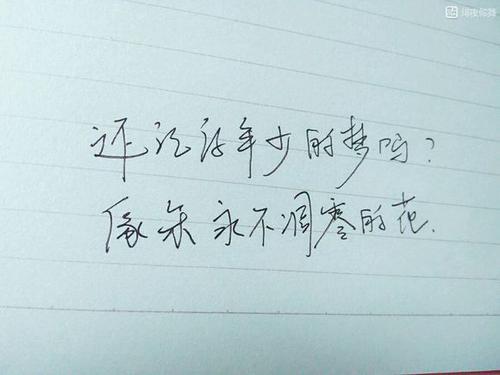 还记得年少的梦吗?
像朵永不凋零的花.